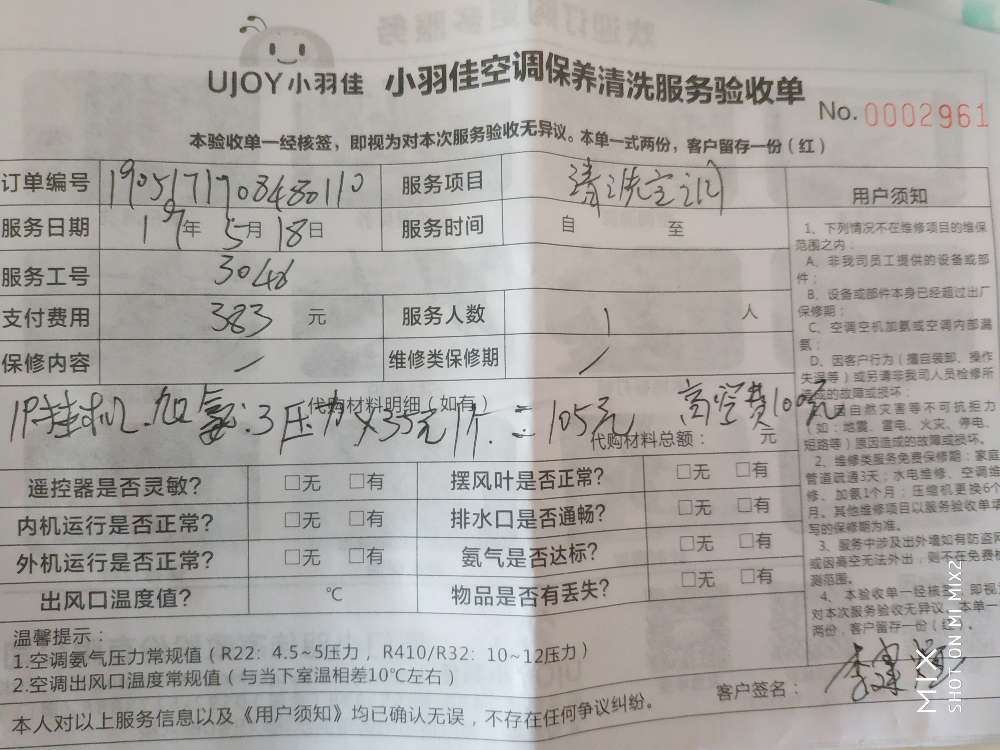 UJOY小羽佳 小羽佳空调保养清洗服务验收单
No. 0002961
本验收单一经核签，即视为对本次服务验收无异议。本单一式两份，客户留存一份（红）
订单编号 1905171708480110 服务项目 清洗空调
服务日期 19年5月18日 服务时间 自 至
服务工号 3046
支付费用 383 元 服务人数 1 人
保修内容 / 维修类保修期 /
代购材料明细（如有）
1P挂机.加氨:3压力×35元/个.=105元 高空费100元
代购材料总额： 元
遥控器是否灵敏？ □无 □有 摆风叶是否正常？ □无 □有
内机运行是否正常？ □无 □有 排水口是否通畅？ □无 □有
外机运行是否正常？ □无 □有 氨气是否达标？ □无 □有
出风口温度值？ ℃ 物品是否有丢失？ □无 □有
温馨提示：
1.空调氨气压力常规值（R22：4.5~5压力，R410/R32：10~12压力）
2.空调出风口温度常规值（与当下室温相差10℃左右）
本人对以上服务信息以及《用户须知》均已确认无误，不存在任何争议纠纷。
客户签名：
用户须知
1、下列情况不在维修项目的维保
范围之内：
A、非我司员工提供的设备或部
件；
B、设备或部件本身已经超过出厂
保修期；
C、空调空机加氨或空调内部漏
氨；
D、因客户行为（擅自装卸、操作
失误等）或另请非我司人员检修所
成的故障或损坏；
因自然灾害等不可抗拒力
（如：地震、雷电、火灾、停电、
短路等）原因造成的故障或损坏。
2、维修类服务免费保修期：家庭
管道疏通3天；水电维修、空调维
修、加氨1个月；压缩机更换6个
月。其他维修项目以服务验收单填
写的保修期为准。
3、服务中涉及出外墙如有防盗网
或因高空无法外出，则不在免费检
测范围。
4、本验收单一经核签，即视
对本次服务验收无异议。本单一
两份，客户留存一份（红）。
MIX
SHOT ON MI MIX2